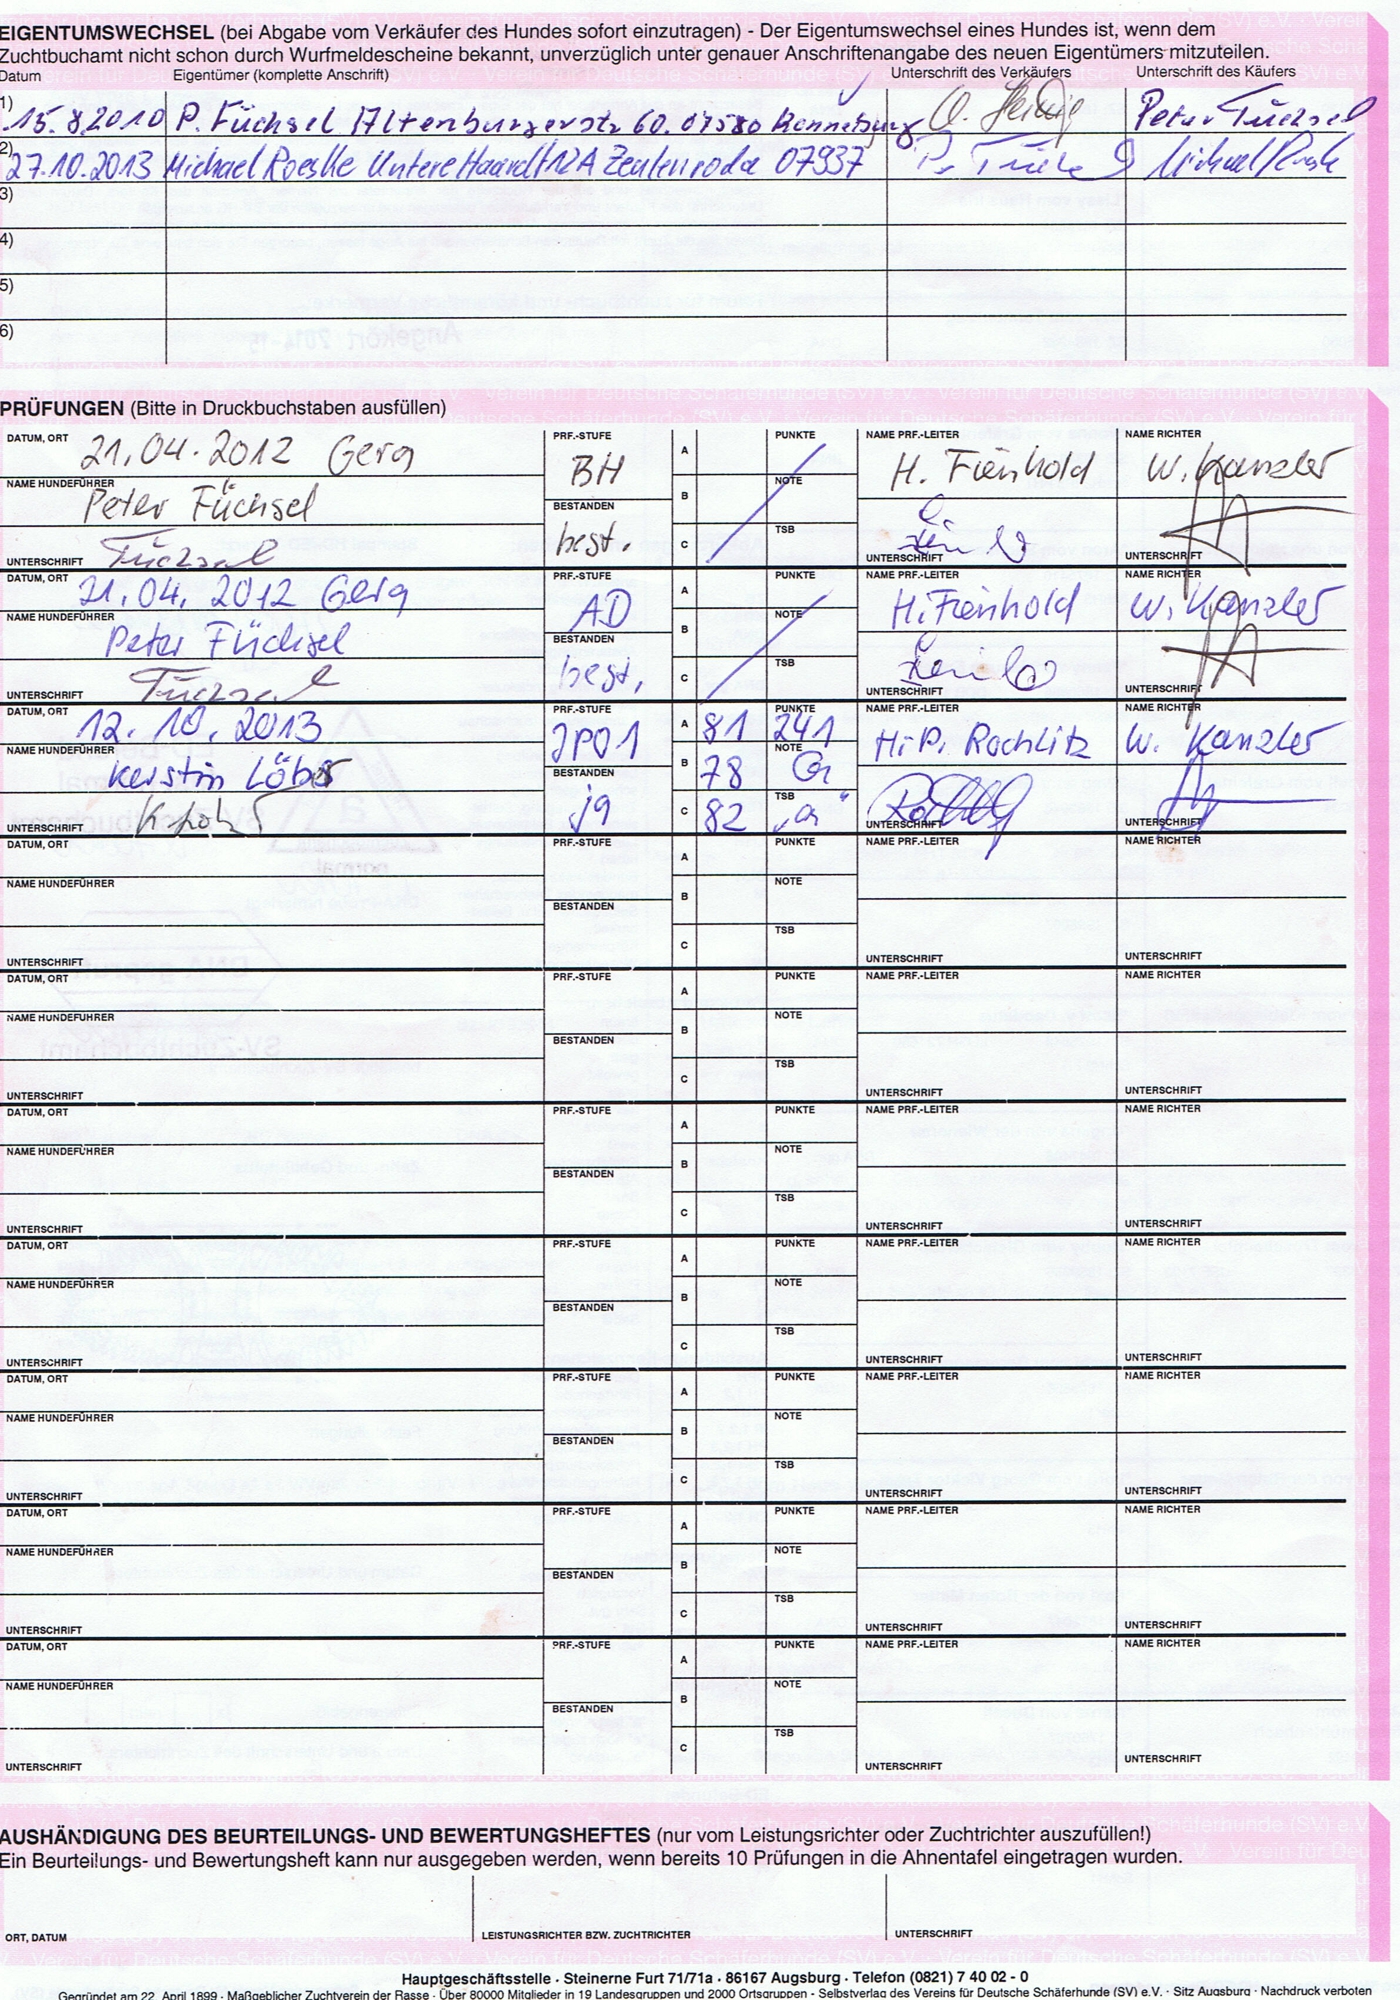 EIGENTUMSWECHSEL (bei Abgabe vom Verkäufer des Hundes sofort einzutragen) - Der Eigentumswechsel eines Hundes ist, wenn dem
Zuchtbuchamt nicht schon durch Wurfmeldescheine bekannt, unverzüglich unter genauer Anschriftenangabe des neuen Eigentümers mitzuteilen.
Datum Eigentümer (komplette Anschrift) Unterschrift des Verkäufers Unterschrift des Käufers
1) 15.8.2010 P. Füchsel Altenburgerstr 60. 07580 Peter Füchsel
2) 27.10.2013 Michael Roeske Untere Haardt 12A Zeulenroda 07937
3)
4)
5)
6)
PRÜFUNGEN (Bitte in Druckbuchstaben ausfüllen)
DATUM, ORT 21.04.2012 Gera PRF.-STUFE BH A PUNKTE NAME PRF.-LEITER H. Fienhold NAME RICHTER W. Kanzler
NAME HUNDEFÜHRER Peter Füchsel BESTANDEN best. B NOTE
UNTERSCHRIFT Füchsel C TSB UNTERSCHRIFT UNTERSCHRIFT
DATUM, ORT 21.04.2012 Gera PRF.-STUFE AD A PUNKTE NAME PRF.-LEITER H. Fienhold NAME RICHTER W. Kanzler
NAME HUNDEFÜHRER Peter Füchsel BESTANDEN best. B NOTE
UNTERSCHRIFT Füchsel C TSB UNTERSCHRIFT UNTERSCHRIFT
DATUM, ORT 12.10.2013 PRF.-STUFE JPO1 A 81 PUNKTE 241 NAME PRF.-LEITER H.P. Rochlitz NAME RICHTER W. Kanzler
NAME HUNDEFÜHRER Kerstin BESTANDEN ja B 78 NOTE G
UNTERSCHRIFT C 82 TSB "a" UNTERSCHRIFT UNTERSCHRIFT
DATUM, ORT PRF.-STUFE A PUNKTE NAME PRF.-LEITER NAME RICHTER
NAME HUNDEFÜHRER BESTANDEN B NOTE
UNTERSCHRIFT C TSB UNTERSCHRIFT UNTERSCHRIFT
DATUM, ORT PRF.-STUFE A PUNKTE NAME PRF.-LEITER NAME RICHTER
NAME HUNDEFÜHRER BESTANDEN B NOTE
UNTERSCHRIFT C TSB UNTERSCHRIFT UNTERSCHRIFT
DATUM, ORT PRF.-STUFE A PUNKTE NAME PRF.-LEITER NAME RICHTER
NAME HUNDEFÜHRER BESTANDEN B NOTE
UNTERSCHRIFT C TSB UNTERSCHRIFT UNTERSCHRIFT
DATUM, ORT PRF.-STUFE A PUNKTE NAME PRF.-LEITER NAME RICHTER
NAME HUNDEFÜHRER BESTANDEN B NOTE
UNTERSCHRIFT C TSB UNTERSCHRIFT UNTERSCHRIFT
DATUM, ORT PRF.-STUFE A PUNKTE NAME PRF.-LEITER NAME RICHTER
NAME HUNDEFÜHRER BESTANDEN B NOTE
UNTERSCHRIFT C TSB UNTERSCHRIFT UNTERSCHRIFT
DATUM, ORT PRF.-STUFE A PUNKTE NAME PRF.-LEITER NAME RICHTER
NAME HUNDEFÜHRER BESTANDEN B NOTE
UNTERSCHRIFT C TSB UNTERSCHRIFT UNTERSCHRIFT
DATUM, ORT PRF.-STUFE A PUNKTE NAME PRF.-LEITER NAME RICHTER
NAME HUNDEFÜHRER BESTANDEN B NOTE
UNTERSCHRIFT C TSB UNTERSCHRIFT UNTERSCHRIFT
AUSHÄNDIGUNG DES BEURTEILUNGS- UND BEWERTUNGSHEFTES (nur vom Leistungsrichter oder Zuchtrichter auszufüllen!)
Ein Beurteilungs- und Bewertungsheft kann nur ausgegeben werden, wenn bereits 10 Prüfungen in die Ahnentafel eingetragen wurden.
ORT, DATUM LEISTUNGSRICHTER BZW. ZUCHTRICHTER UNTERSCHRIFT
Hauptgeschäftsstelle · Steinerne Furt 71/71a · 86167 Augsburg · Telefon (0821) 7 40 02 - 0
Gegründet am 22. April 1899 · Maßgeblicher Zuchtverein der Rasse · Über 80000 Mitglieder in 19 Landesgruppen und 2000 Ortsgruppen - Selbstverlag des Vereins für Deutsche Schäferhunde (SV) e.V. · Sitz Augsburg · Nachdruck verboten